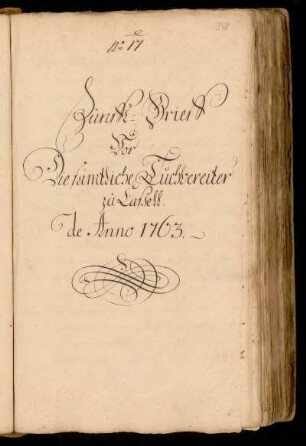 No 17
Zunft-Brieff
Vor
Die sämtliche Tuchbereiter
zu Cassell.
de Anno 1763.